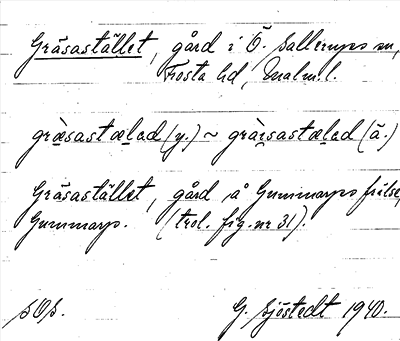 Gräsastället, gård i Ö. Sallerups sn,
Frosta hd, Malm.l.
gräsastælad (y.) ~ gräisastælad (ä.)
Gräsastället, gård å Gummarps frälse,
Gummarp. (trol. fig. nr 31).
SOS.
G. Sjöstedt 1940.